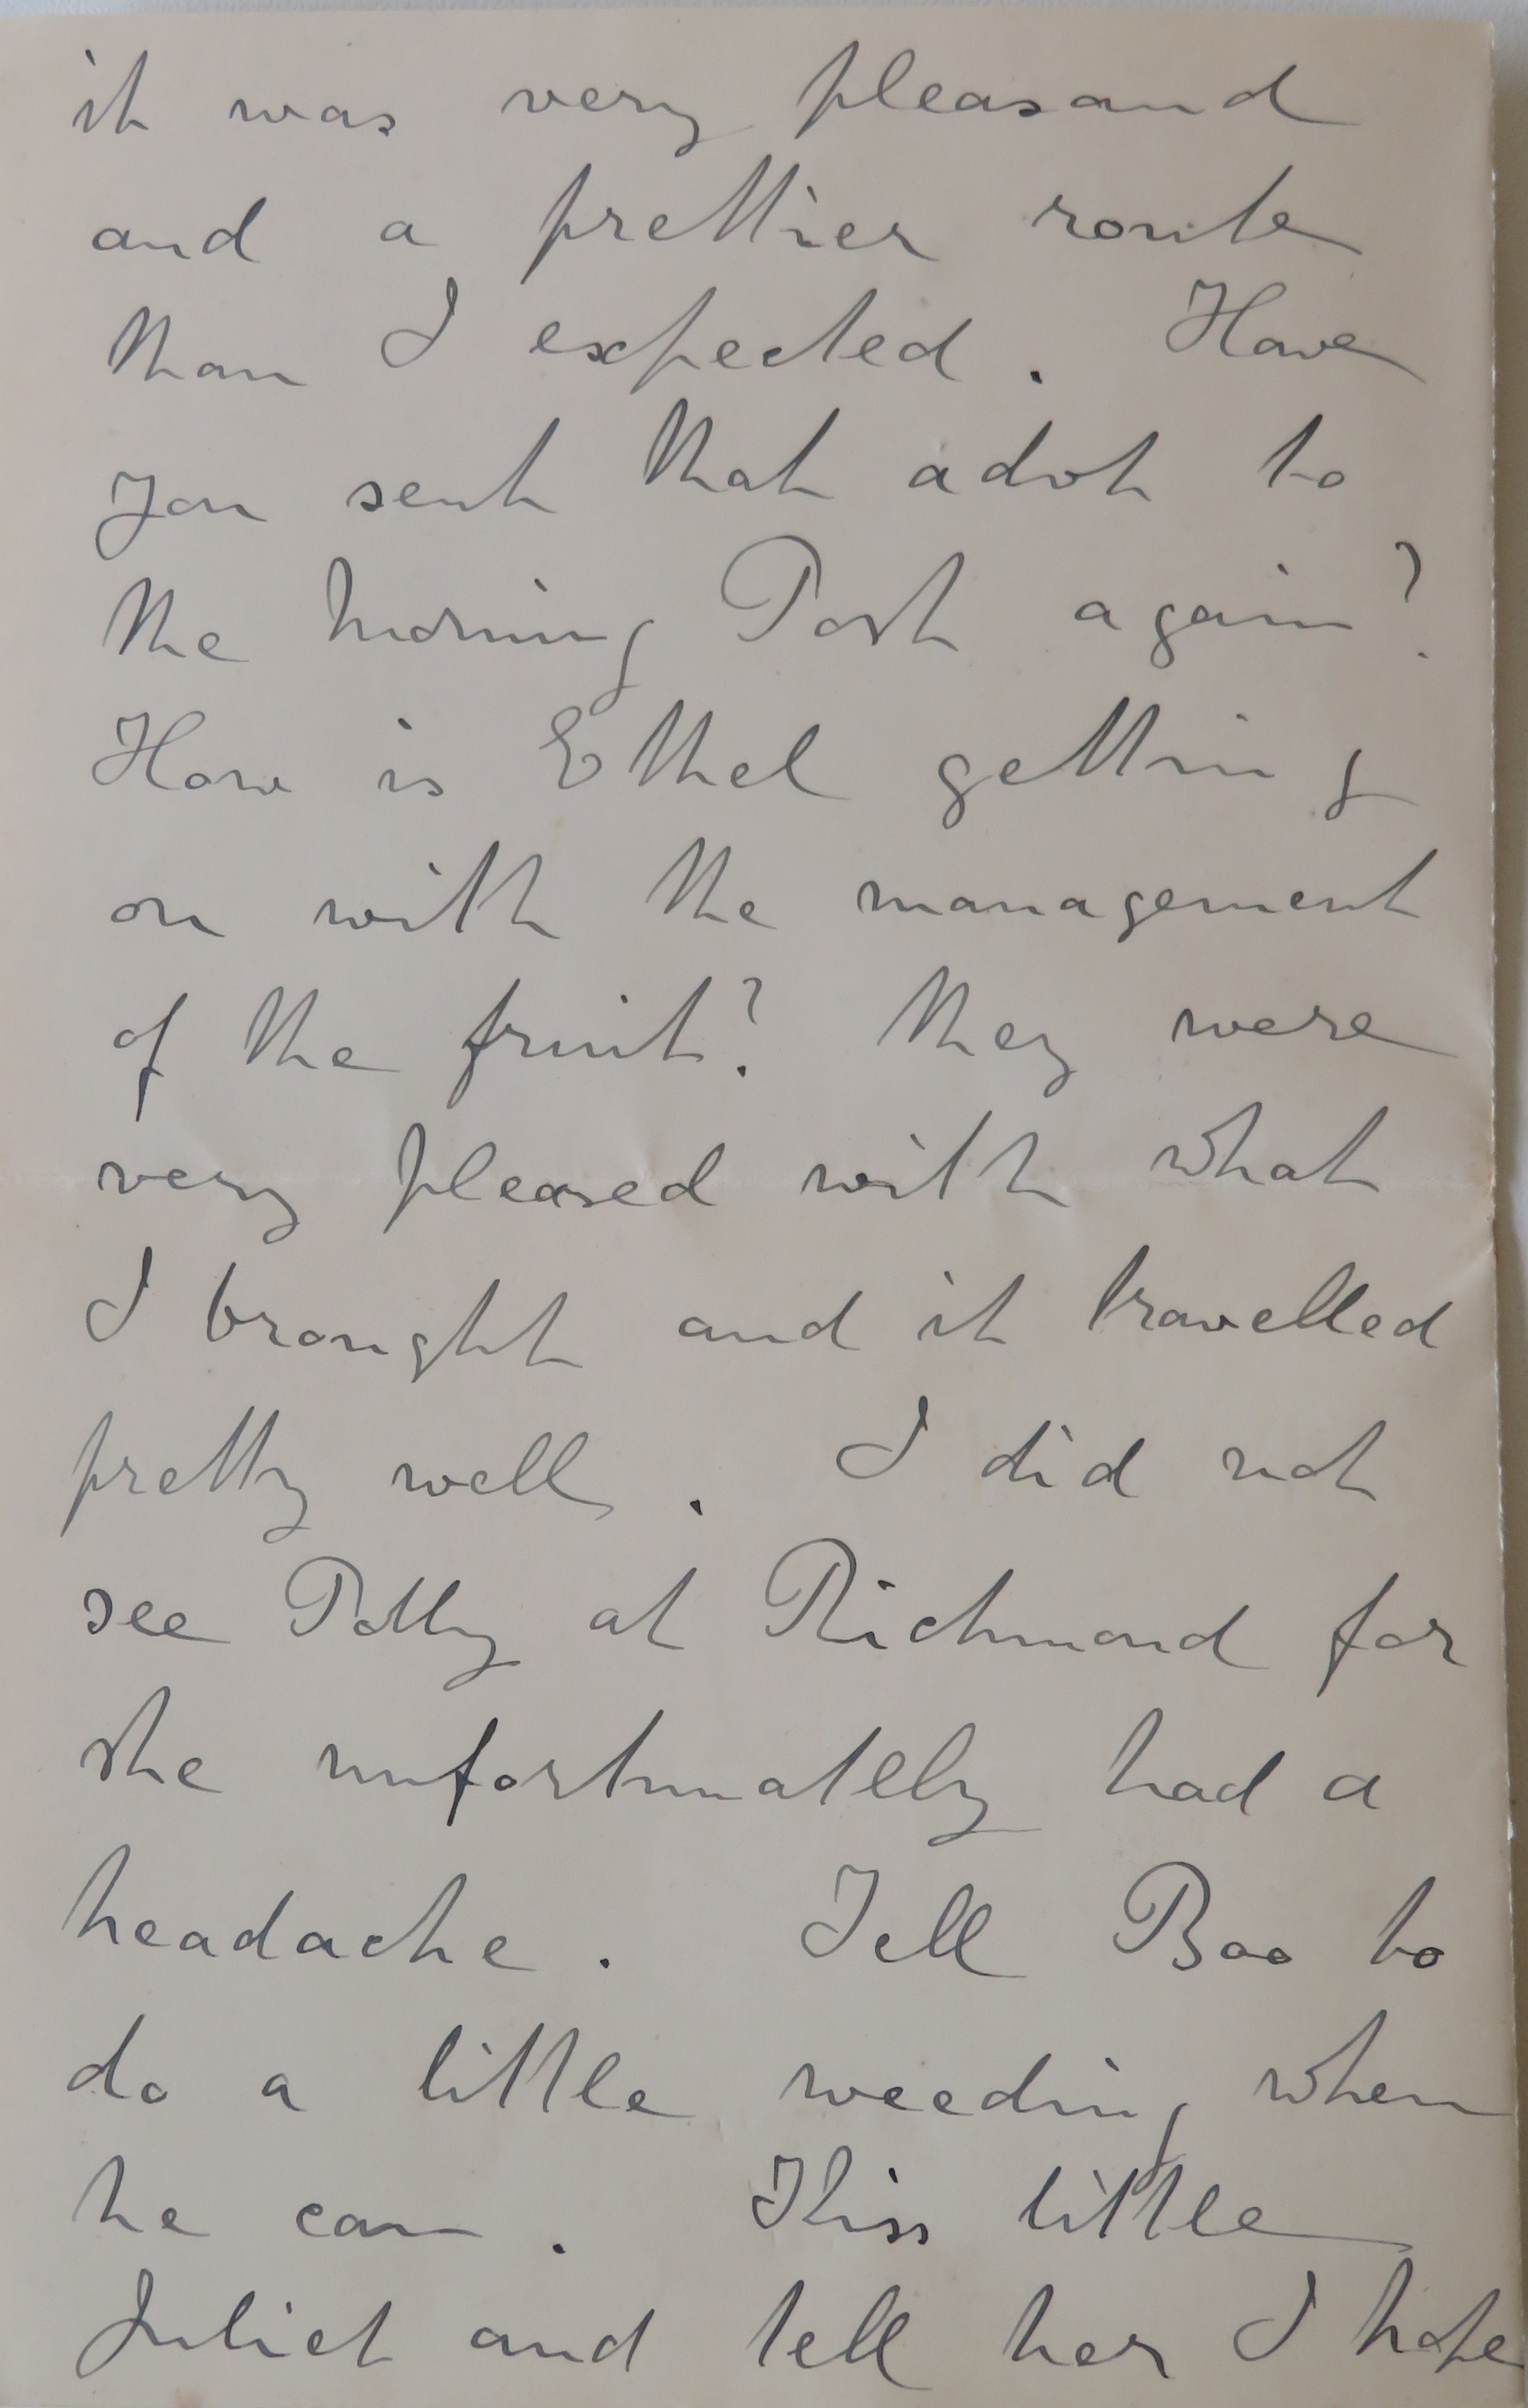 it was very pleasand
and a prettier route
than I expected. Have
you sent that advt to
the Morning Post again?
How is Ethel getting
on with the management
of the fruit? They were
very pleased with what
I brought and it travelled
pretty well. I did not
see Polly at Richmond for
she unfortunately had a
headache. Tell Boo to
do a little weeding when
he can. Kiss little
Juliet and tell her I hope